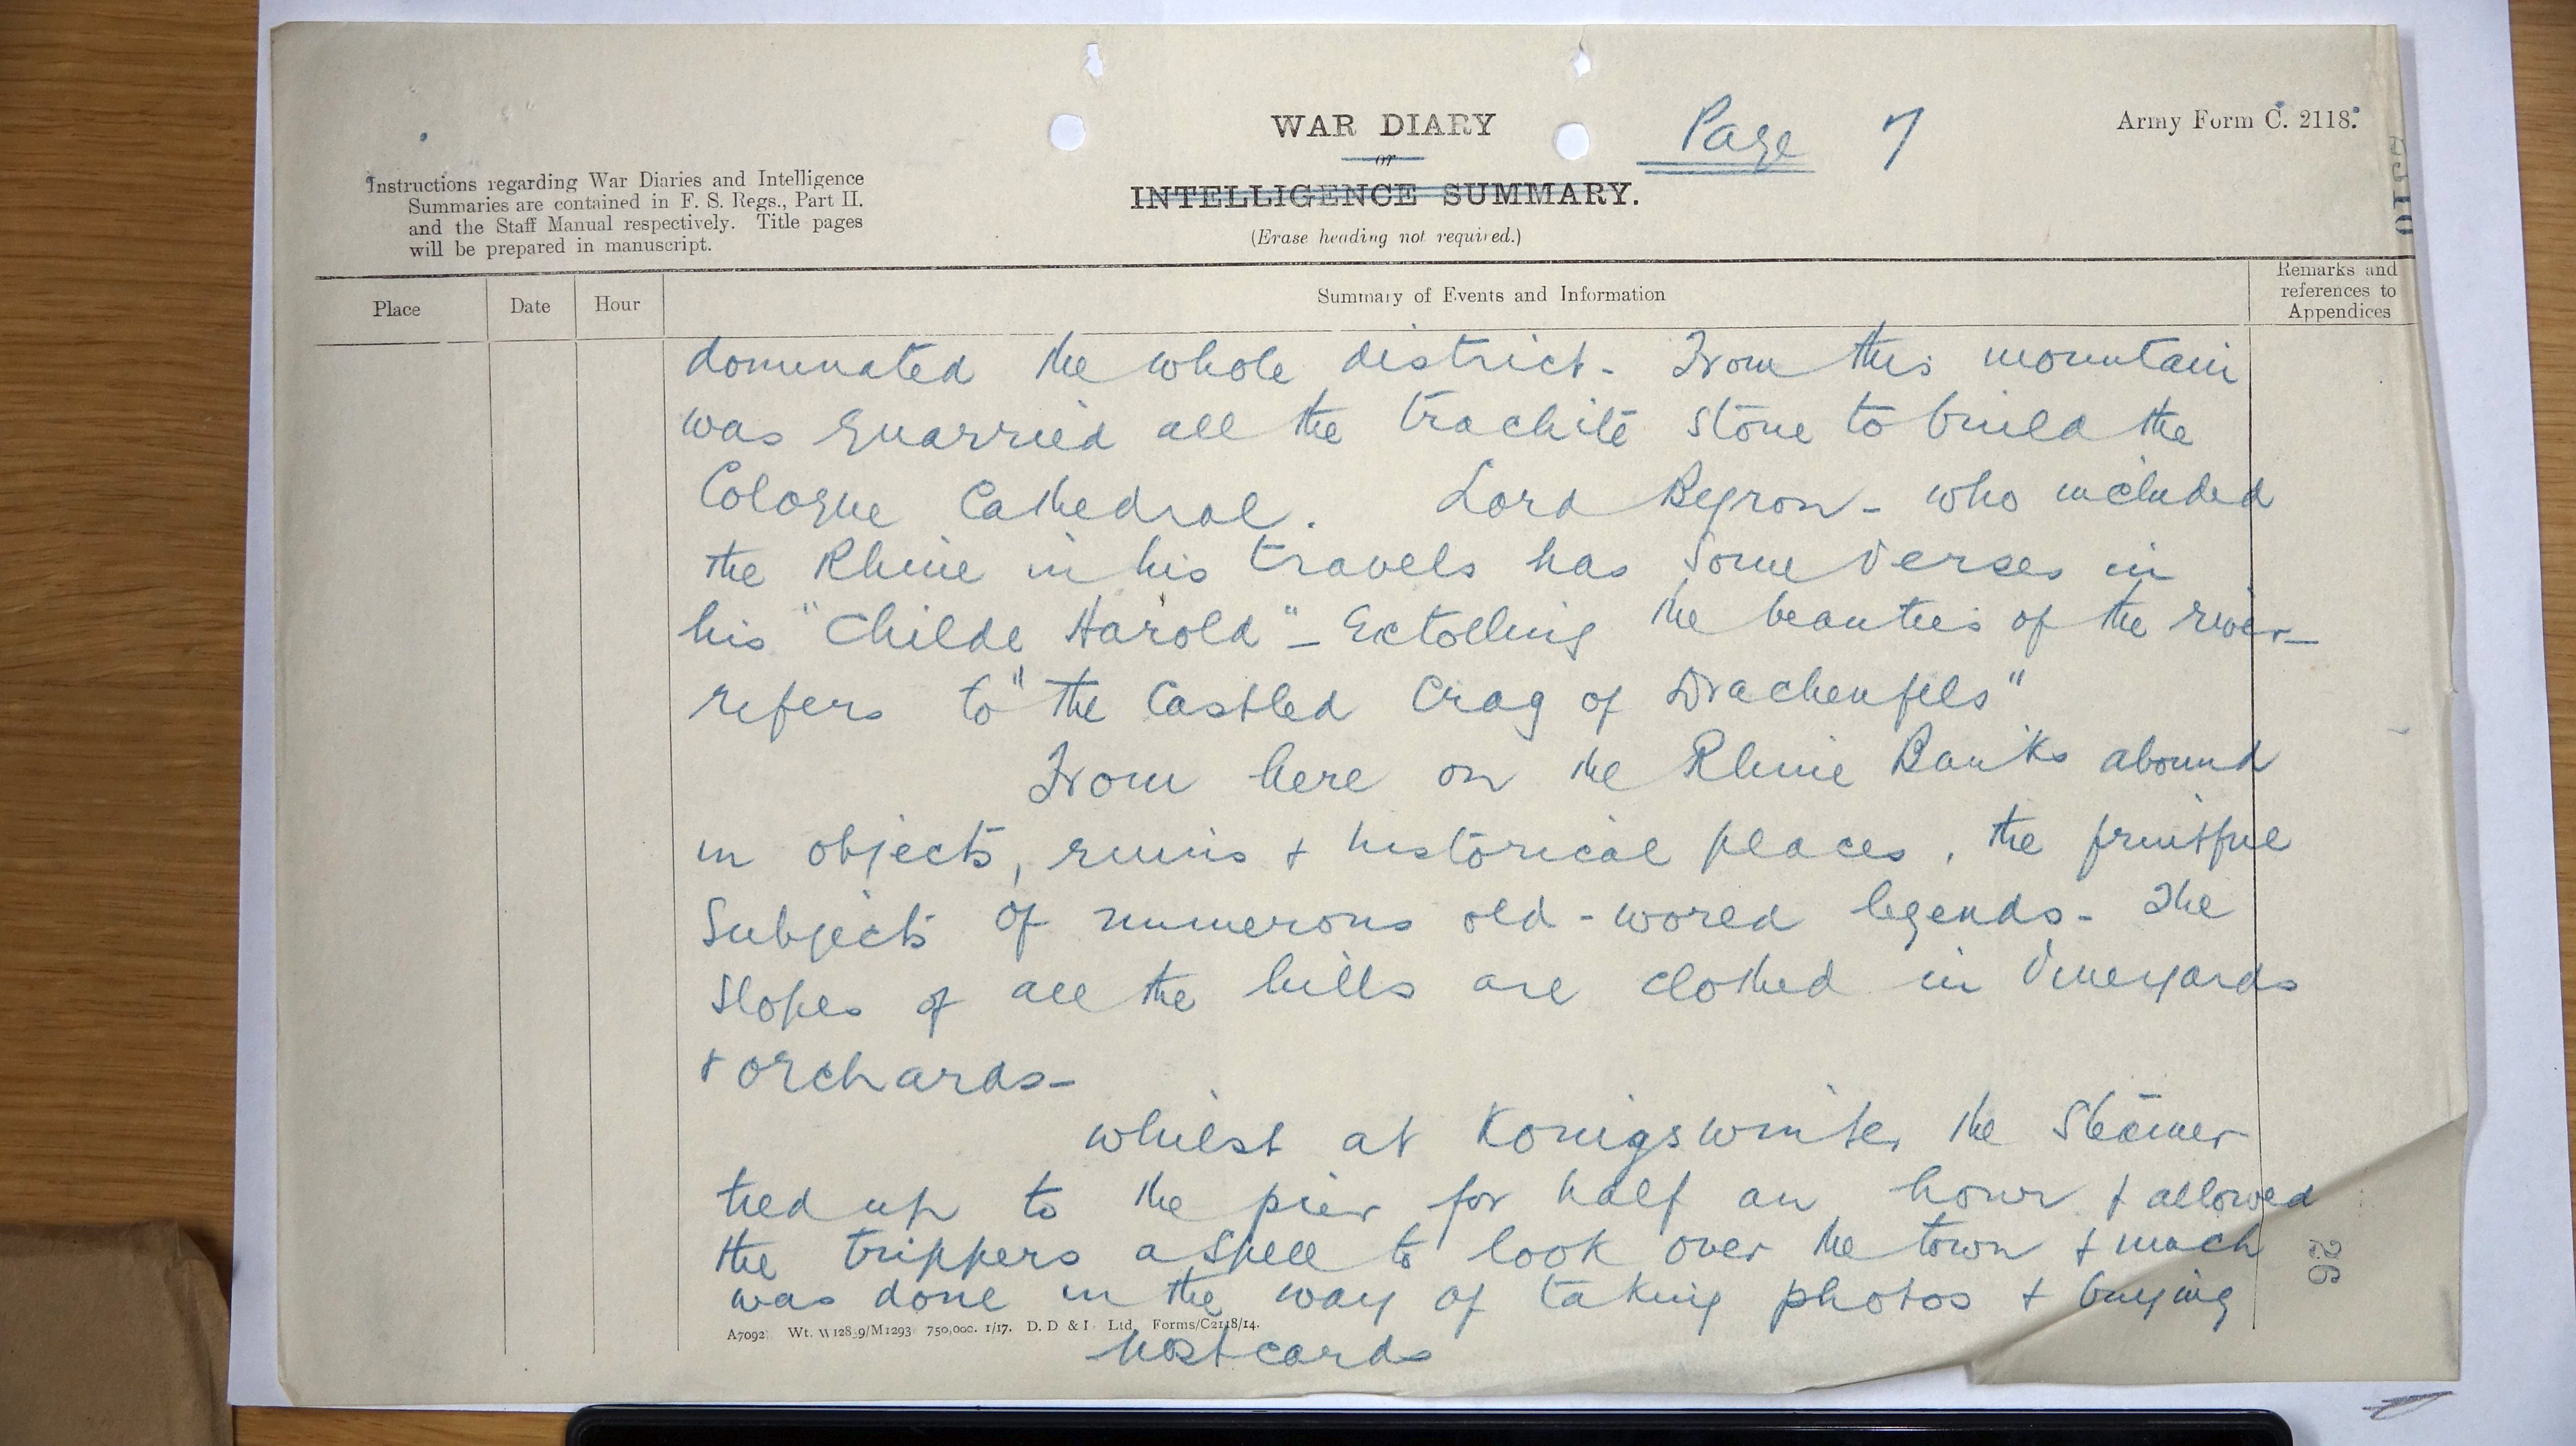 WAR DIARY
or
INTELLIGENCE SUMMARY.
(Erase heading not required.)
Page 7
Army Form C. 2118.
Instructions regarding War Diaries and Intelligence
Summaries are contained in F. S. Regs., Part II.
and the Staff Manual respectively. Title pages
will be prepared in manuscript.
Place
Date
Hour
Summary of Events and Information
Remarks and
references to
Appendices
dominated the whole district - From this mountain
was quarried all the trachite stone to build the
Cologne Cathedral. Lord Byron - who included
the Rhine in his travels has some verses in
his "Childe Harold" - Extolling the beauties of the river -
refers to "the Castled Crag of Drachenfels"
From here on the Rhine Banks abound
in objects, ruins + historical places, the fruitful
subjects of numerous old-world legends - The
slopes of all the hills are clothed in Vineyards
+ orchards -
whilst at Konigswinter the Steamer
tied up to the pier for half an hour + allowed
the trippers a spell to look over the town + much
was done in the way of taking photos + buying
postcards
A7092 Wt. W1289/M1293 750,000. 1/17. D. D & I Ltd Forms/C2118/14.
26